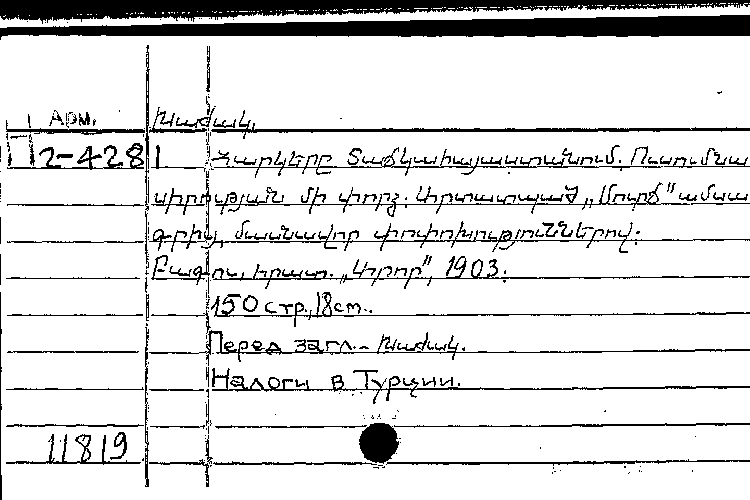 Арм. Խաժակ.
П2-4281 Հարկերը Տաճկահայաստանում. Ուսումնա
սիրության մի փորձ. Արտատպած „Մուրճ" ամսա
գրից, մասնավոր փոփոխություններով:
Բագու, հրատ. „Արոր", 1903:
150 стр., 18 cm.
Перед загл. – Խաժակ.
Налоги в Турции.
11819